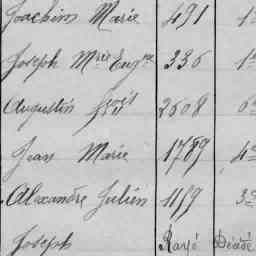 Joachim Marie 491 1
Joseph Mrie Eugne 336 1
Augustin Frçois 2608 6
Jean Marie 1789 4
Alexandre Julien 1159 3
Joseph Rayé Décédé